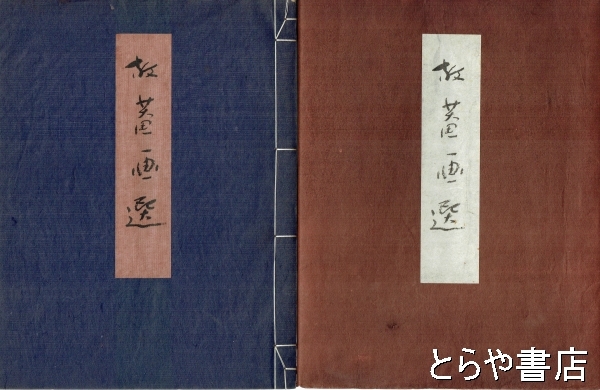 放菴画選
放菴画選
とらや書店